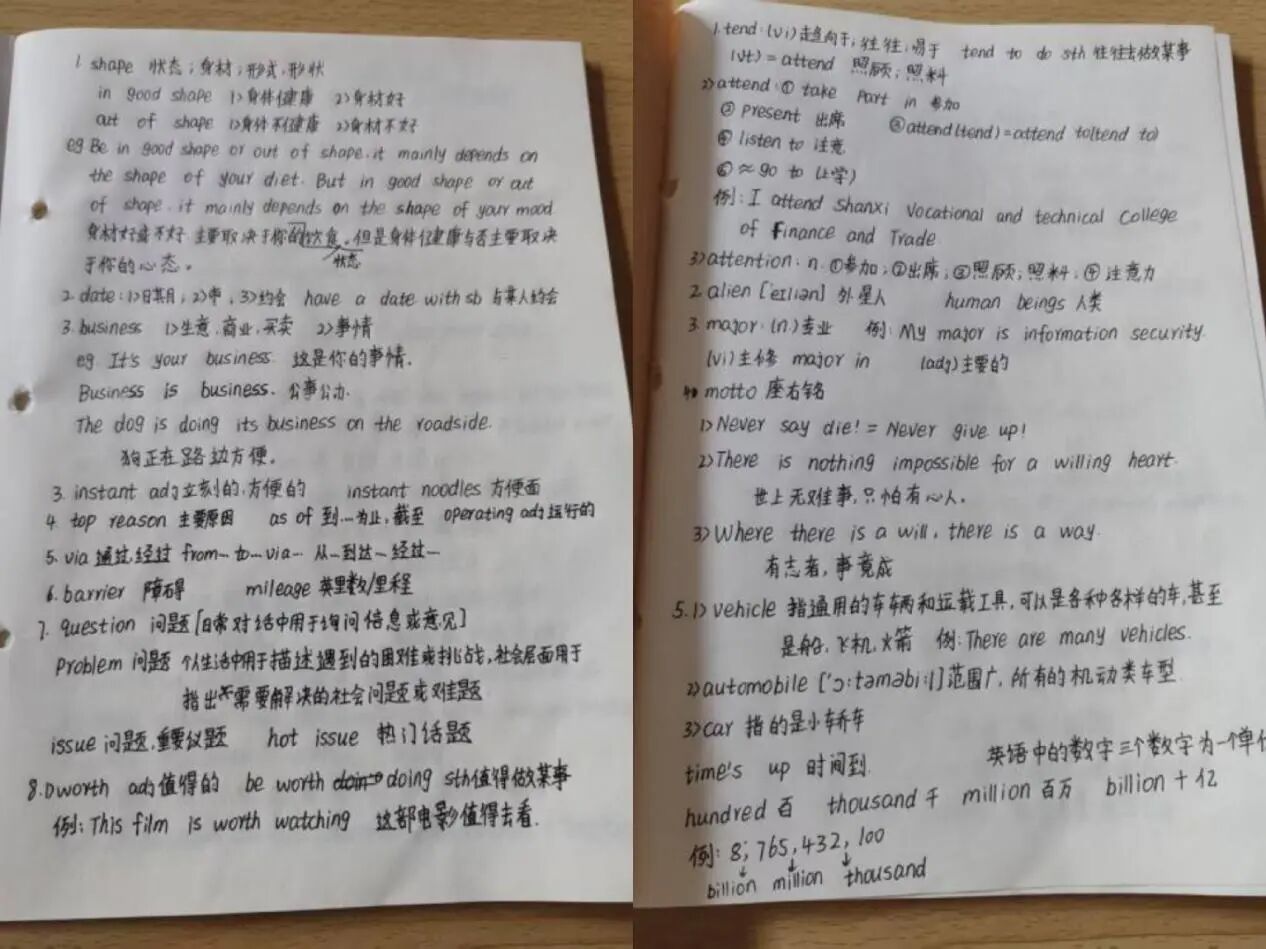 1. shape 状态；身材；形式，形状
in good shape 1>身体健康 2>身材好
out of shape 1>身体不健康 2>身材不好
eg Be in good shape or out of shape, it mainly depends on
the shape of your diet. But in good shape or out
of shape, it mainly depends on the shape of your mood
身材好或不好主要取决于你的饮食，但是身体健康与否主要取决
状态
于你的心态。
2. date: 1>日期; 2>枣, 3>约会 have a date with sb 与某人约会
3. business 1>生意，商业，买卖 2>事情
eg. It's your business. 这是你的事情.
Business is business. 公事公办.
The dog is doing its business on the roadside.
狗正在路边方便。
3. instant adj 立刻的，方便的 instant noodles 方便面
4. top reason 主要原因 as of 到…为止，截至 operating adj 运行的
5. via 通过，经过 from… to… via… 从…到达…经过…
6. barrier 障碍 mileage 英里数/里程
7. question 问题[日常对话中用于询问信息或意见]
problem 问题 个人生活中用于描述遇到的困难或挑战，社会层面用于
指出需要解决的社会问题或难题
issue 问题，重要议题 hot issue 热门话题
8. 1)worth adj 值得的 be worth doing sth 值得做某事
例: This film is worth watching 这部电影值得去看.
1. tend: (vi) 趋向于；往往；易于 tend to do sth 往往去做某事
(vt) = attend 照顾；照料
2>attend: ① take part in 参加
② present 出席 ③attend(tend)=attend to(tend to)
④ listen to 注意
⑥ ≈ go to (上学)
例: I attend Shanxi Vocational and technical College
of Finance and Trade
3>attention: n. ①参加; ②出席; ③照顾; 照料; ④ 注意力
2. alien ['eɪliən] 外星人 human beings 人类
3. major: (n) 专业 例: My major is information security.
(vi) 主修 major in (adj) 主要的
4. motto 座右铭
1>Never say die! = Never give up!
2>There is nothing impossible for a willing heart.
世上无难事，只怕有心人.
3>Where there is a will, there is a way.
有志者，事竟成
5. 1> vehicle 指通用的车辆和运载工具，可以是各种各样的车，甚至
是船，飞机，火箭 例: There are many vehicles.
2>automobile ['ɔ:təməbi:l] 范围广，所有的机动类车型
3>car 指的是小轿车
time's up 时间到. 英语中的数字三个数字为一个单位
hundred 百 thousand 千 million 百万 billion 十亿
例: 8, 765, 432, 100
billion million thousand